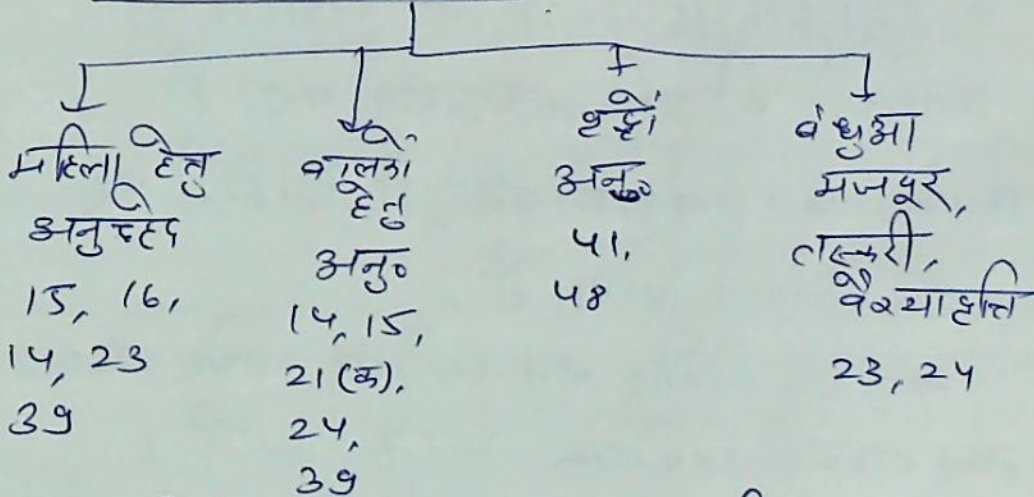 महिला हेतु
अनुच्छेद
15, 16,
14, 23
39
बालकों
हेतु
अनु०
14, 15,
21 (क),
24,
39
वृद्धों
अनु०
41,
48
बंधुआ
मजदूर,
तस्करी,
वैश्यावृत्ति
23, 24